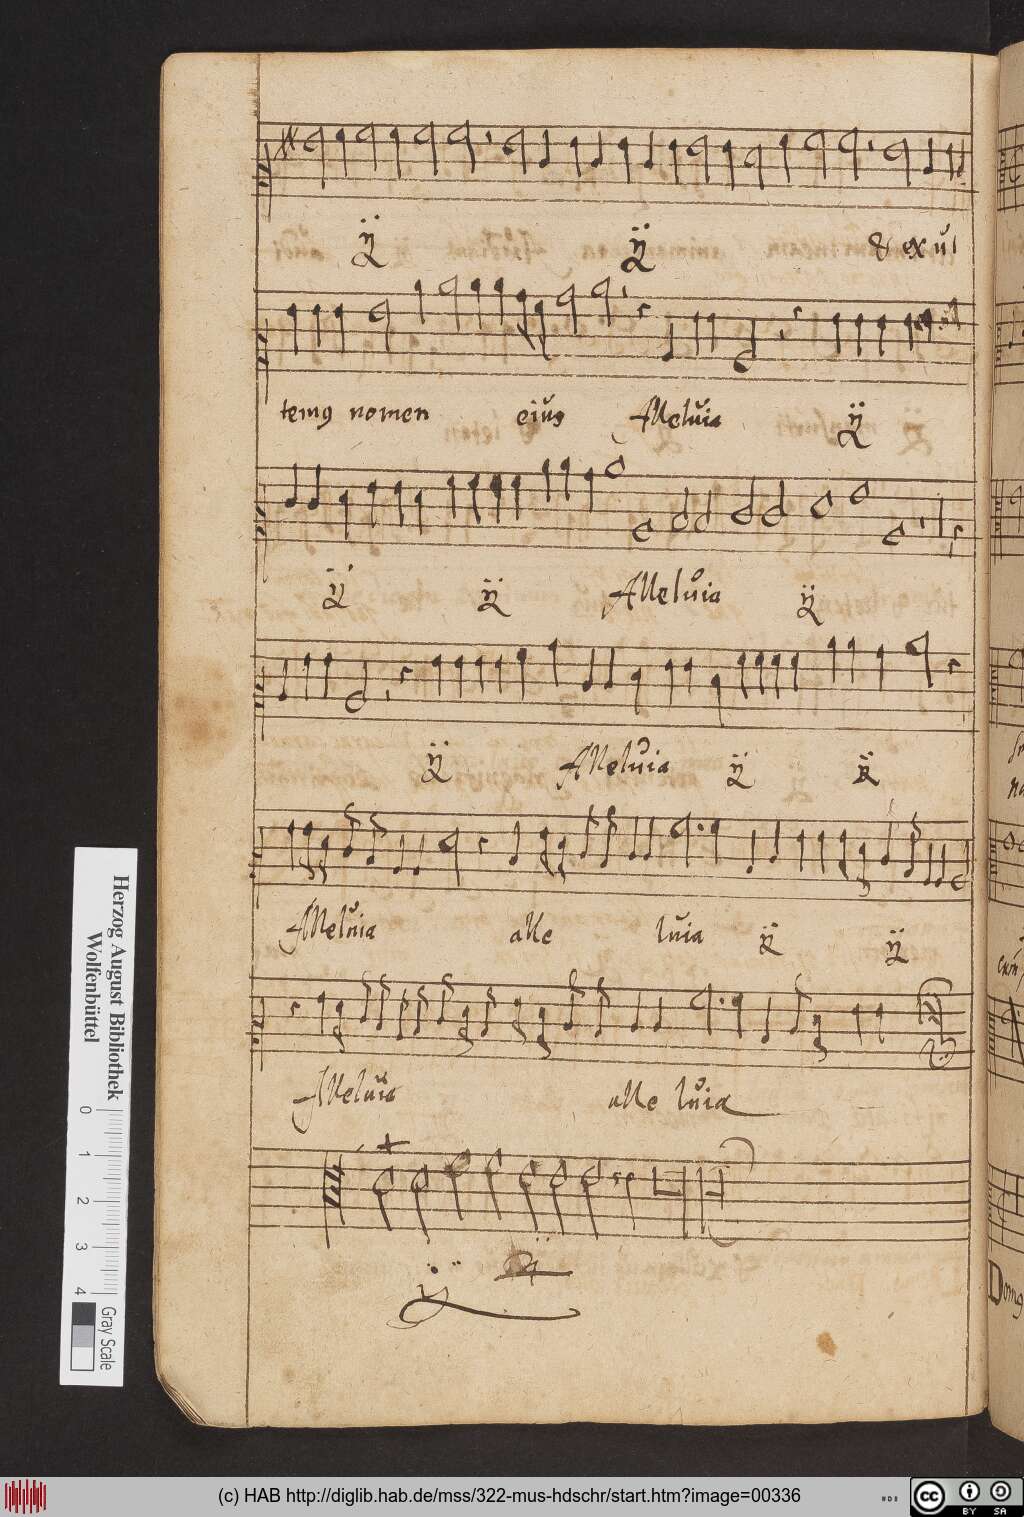 ÿ ÿ & exul
temus nomen eius Alleluia ÿ
ÿ ÿ Alleluia ÿ
ÿ Alleluia ÿ ÿ
Alleluia alle luia ÿ ÿ
Alleluia alle luia
ÿ
Domus
Herzog August Bibliothek
Wolfenbüttel
0 1 2 3 4
Gray Scale
(c) HAB http://diglib.hab.de/mss/322-mus-hdschr/start.htm?image=00336
cc BY SA